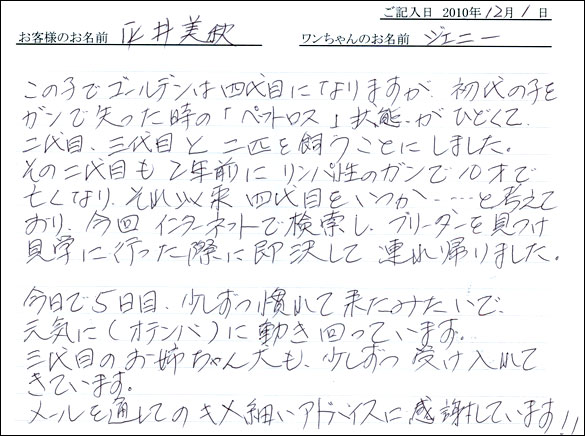 ご記入日 2010年12月1日
お客様のお名前 正井美秋 ワンちゃんのお名前 ジェニー
この子でゴールデンは四代目になりますが、初代の子を
ガンで失った時の「ペットロス」状態がひどくて、
二代目、三代目と二匹を飼うことにしました。
その二代目も2年前にリンパ性のガンで10才で
亡くなり、それ以来四代目をいつか……と考えて
おり、今回インターネットで検索し、ブリーダーを見つけ
見学に行った際に即決して連れ帰りました。
今日で5日目、少しずつ慣れて来たみたいで、
元気に(オテンバ)に動き回っています。
三代目のお姉ちゃん犬も、少しずつ受け入れて
きています。
メールを通してのキメ細いアドバイスに感謝しています!!